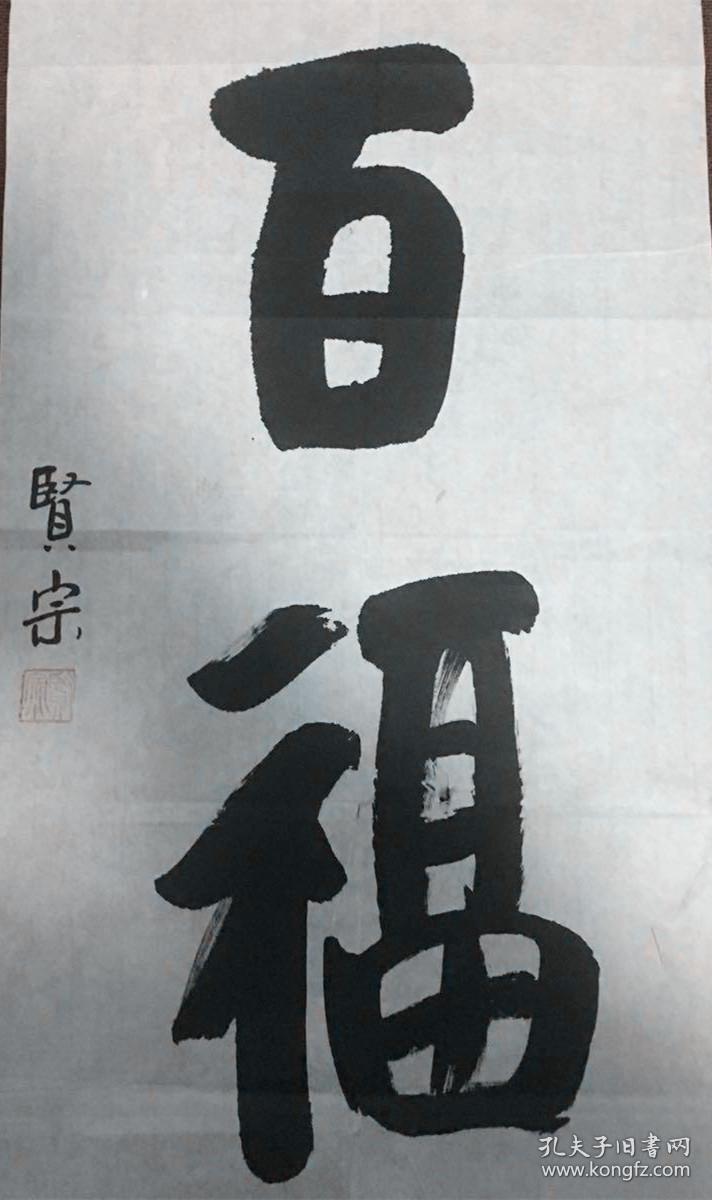 百福
賢宗
孔夫子旧書网
www.kongfz.com